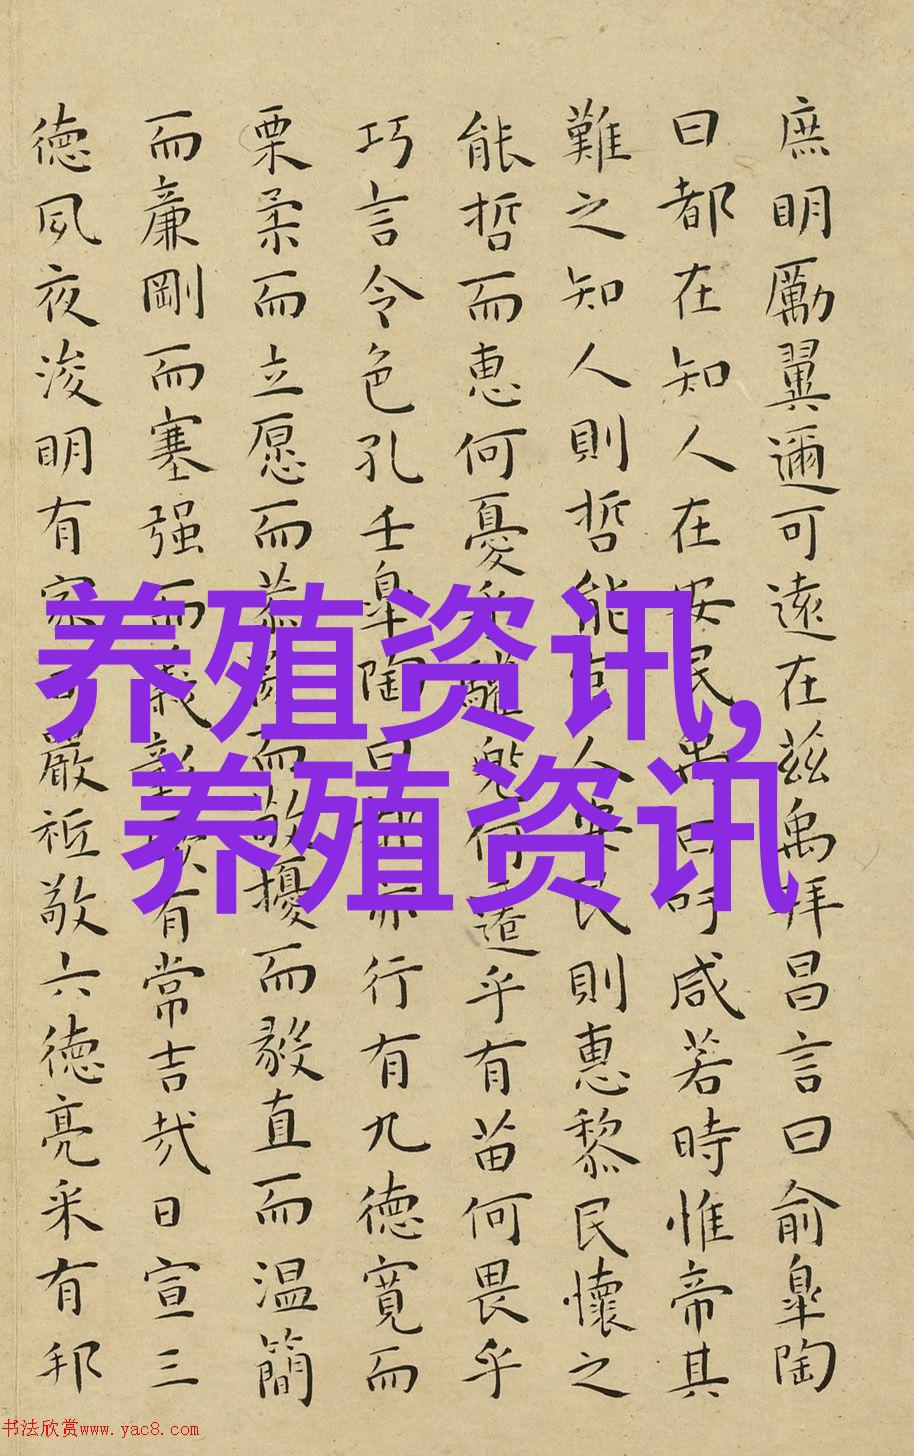 庶明勵翼邇可遠在茲禹拜昌言曰俞皐陶
曰都在知人在安民禹曰吁咸若時惟帝其
難之知人則哲能官人安民則惠黎民懷之
能哲而惠何憂乎驩兜何遷乎有苗何畏乎
巧言令色孔壬皐陶曰都亦行有九德寬而
栗柔而立愿而恭亂而敬擾而毅直而温簡
而廉剛而塞强而義彰厥有常吉哉日宣三
德夙夜浚明有家日嚴祗敬六德亮采有邦
养殖资讯,
养殖资讯
书法欣赏www.yac8.com